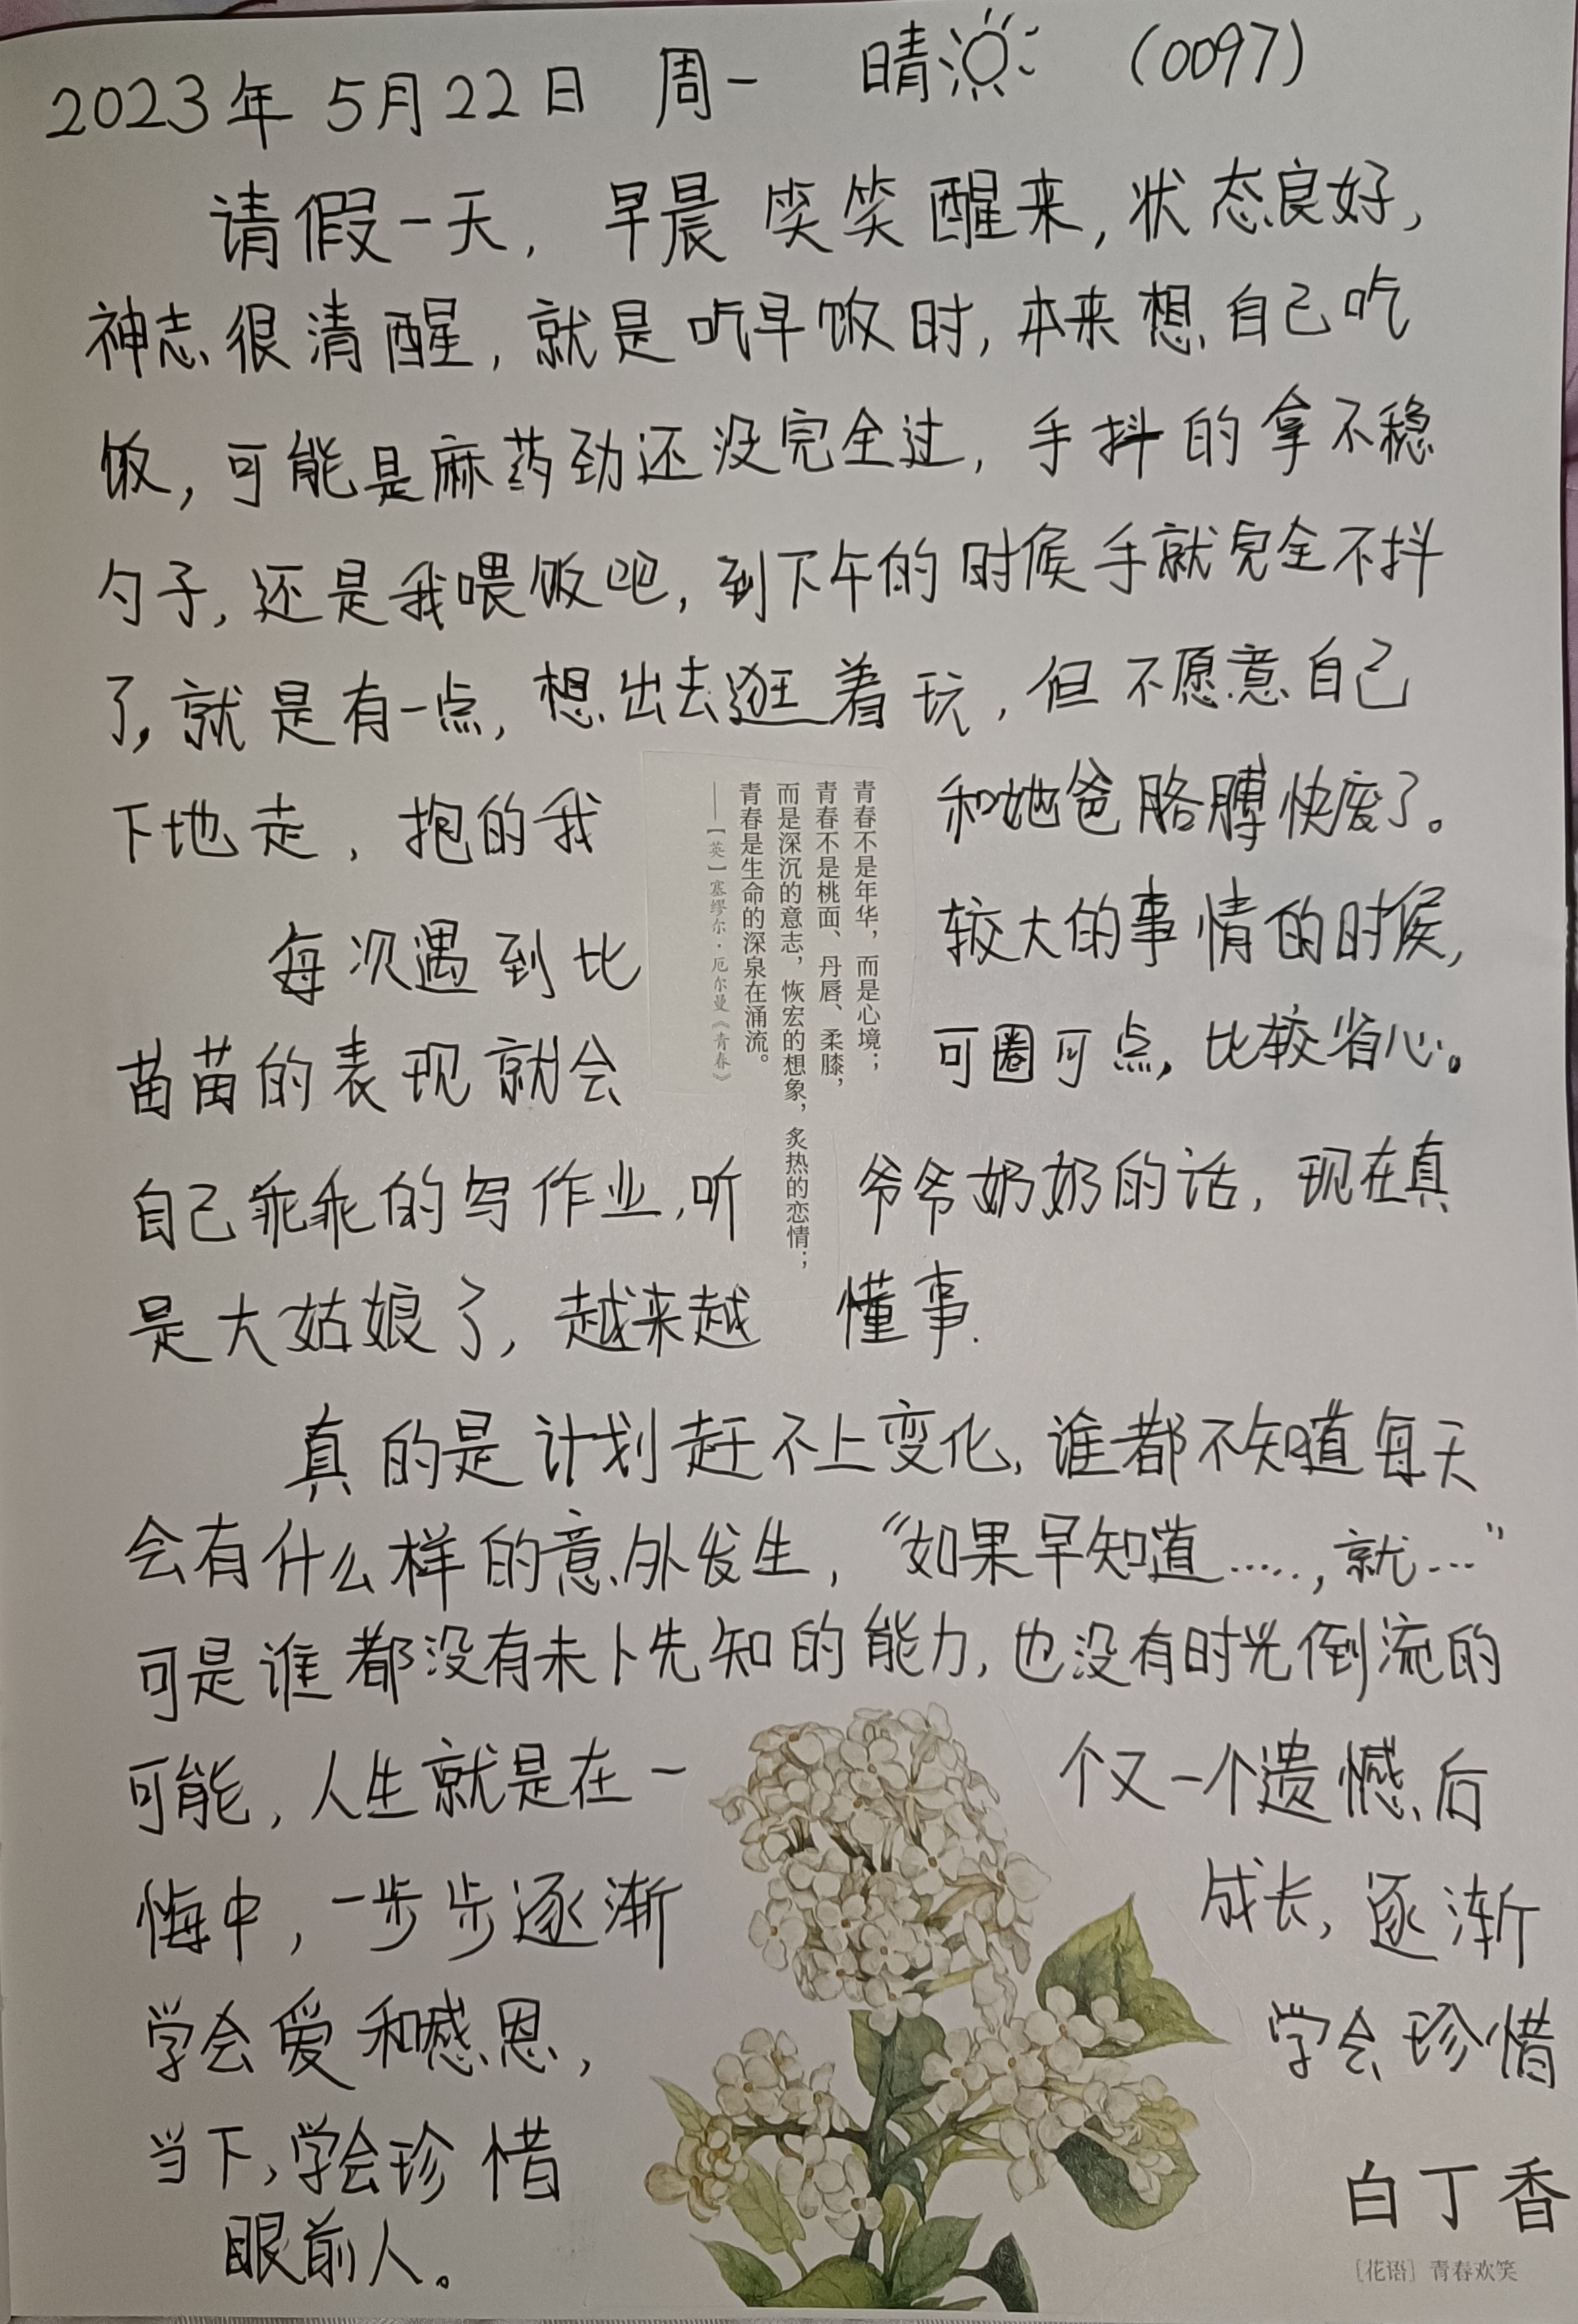 2023年5月22日 周一 晴 (0097)
请假一天，早晨笑笑醒来，状态良好，
神志很清醒，就是吃早饭时，本来想自己吃
饭，可能是麻药劲还没完全过，手抖的拿不稳
勺子，还是我喂饭吧，到下午的时候手就完全不抖
了，就是有一点，想出去逛着玩，但不愿意自己
下地走，抱的我和她爸胳膊快废了。
每次遇到比较大的事情的时候，
苗苗的表现就会可圈可点，比较省心。
自己乖乖的写作业，听爷爷奶奶的话，现在真
是大姑娘了，越来越懂事.
真的是计划赶不上变化，谁都不知道每天
会有什么样的意外发生，“如果早知道……，就…”
可是谁都没有未卜先知的能力，也没有时光倒流的
可能，人生就是在一个又一个遗憾后
悔中，一步步逐渐成长，逐渐
学会爱和感恩，学会珍惜
当下，学会珍惜
眼前人。
青春不是年华，而是心境；
青春不是桃面、丹唇、柔膝，
而是深沉的意志，恢宏的想象，炙热的恋情；
青春是生命的深泉在涌流。
——［英］塞缪尔·厄尔曼《青春》
白丁香
［花语］青春欢笑